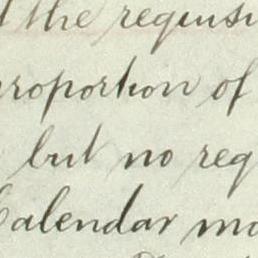 the requisi
proportion of
but no req
Calendar mo